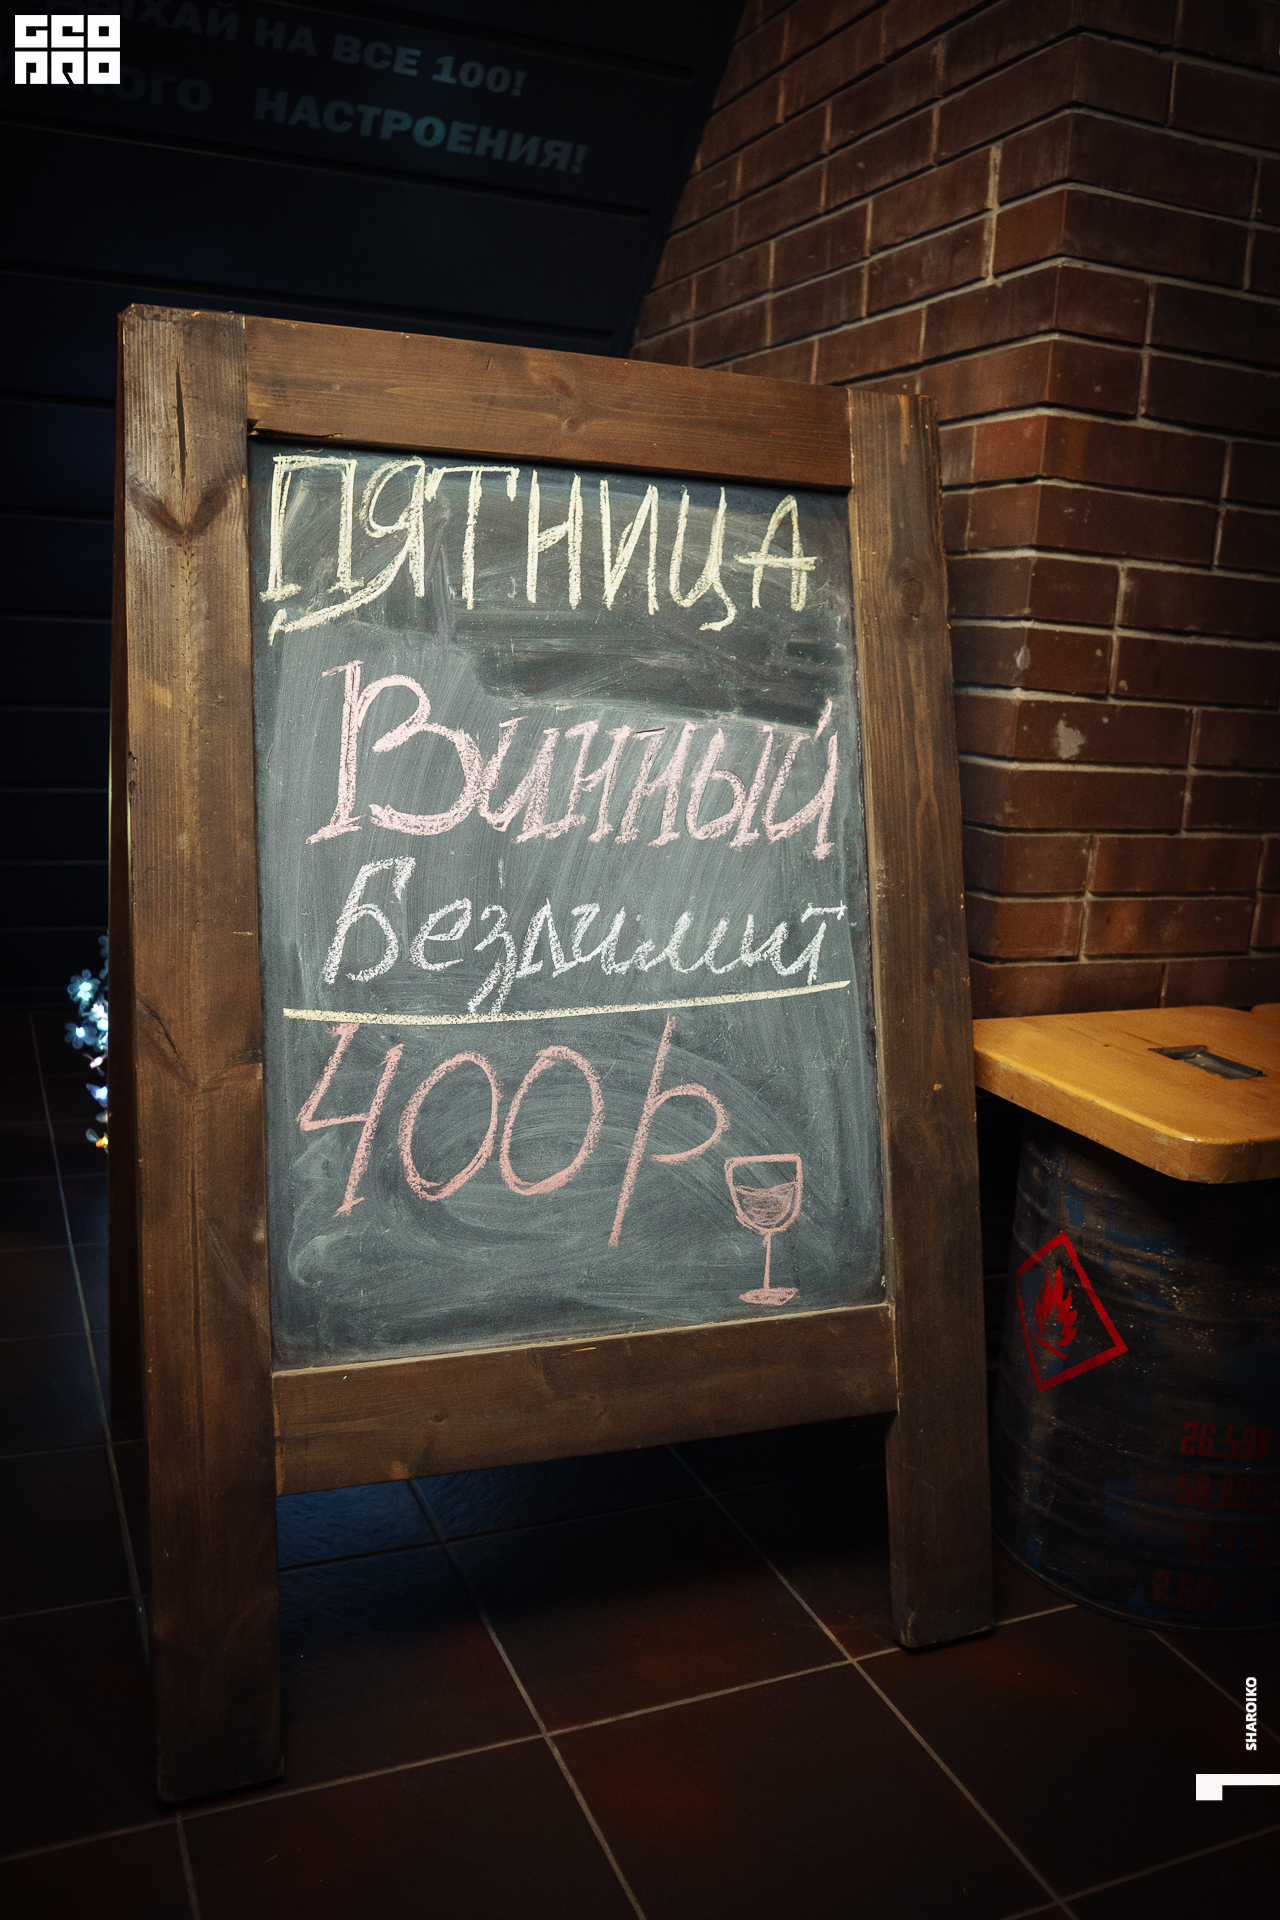 GEO
PRO
ДЫХАЙ НА ВСЕ 100!
НАСТРОЕНИЯ!
ПЯТНИЦА
Винный
безлимит
400 р
SHAROIKO